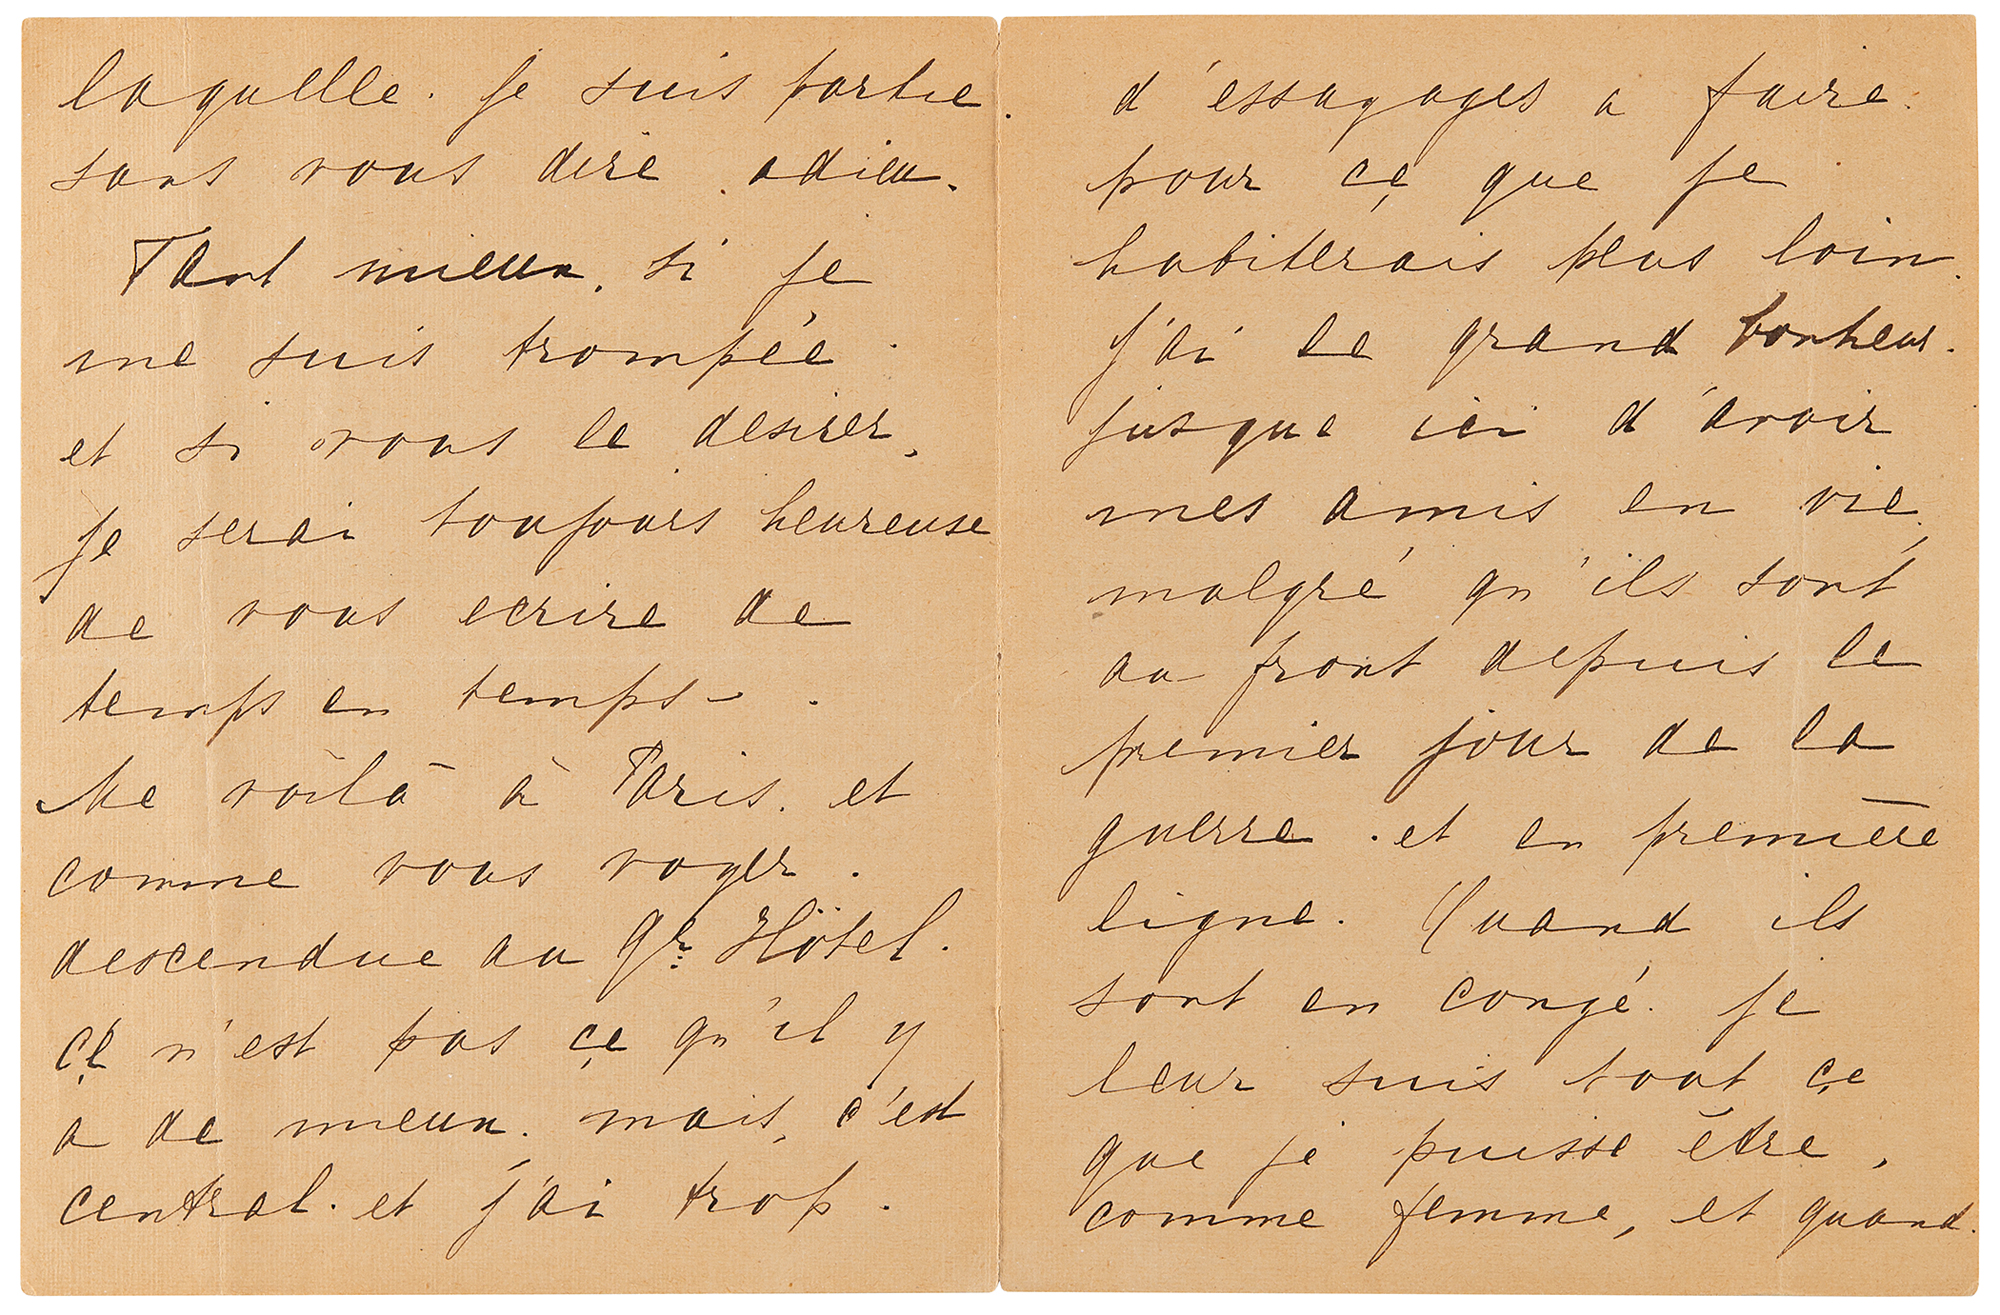 laquelle. je suis partie.
sans vous dire. adieu.
Tant mieux. si je
me suis trompée.
et si vous le desirer,
je serai toujours heureuse
de vous ecrire de
temps en temps - .
Me voilà à Paris. et
comme vous voyer.
descendue au Gr. Hôtel.
çe n'est pas çe qu'il y
a de mieux. mais, c'est
central. et j'ai trop.
d'essayages a faire.
pour çe que je
habiterais plus loin.
j'ai le grand bonheur.
jusque ici d'avoir
mes amis en vie,
malgré qu'ils sont
au front depuis le
premier jour de la
guerre. et en première
ligne. Quand ils
sont en congé. je
leur suis tout çe
que je puisse être,
comme femme, et quand.